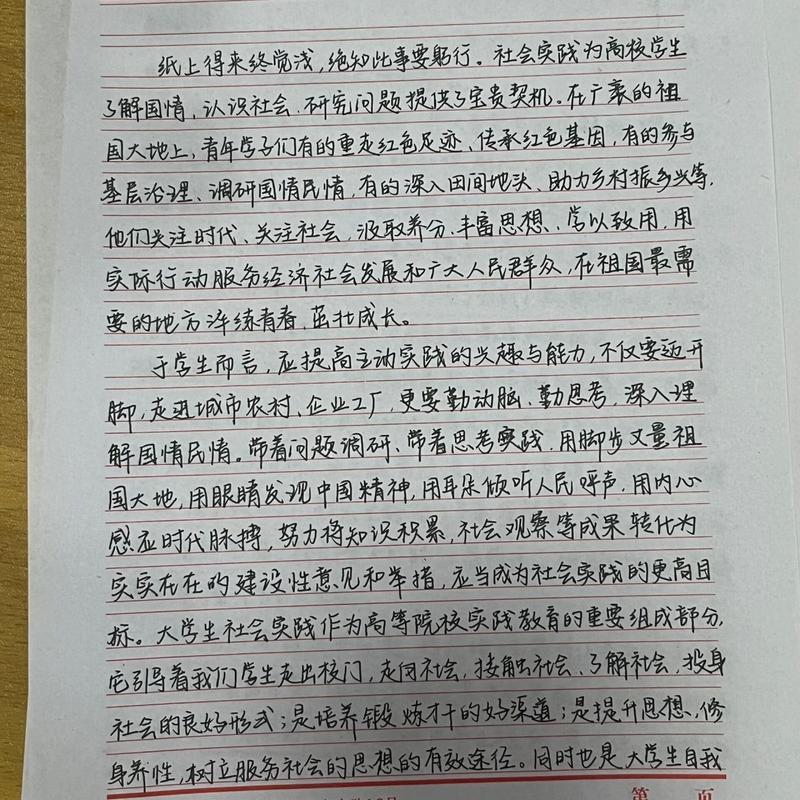 纸上得来终觉浅,绝知此事要躬行。社会实践为高校学生
了解国情,认识社会、研究问题提供了宝贵契机。在广袤的祖
国大地上,青年学子们有的重走红色足迹、传承红色基因,有的参与
基层治理、调研国情民情,有的深入田间地头、助力乡村振乡兴等,
他们关注时代、关注社会,汲取养分、丰富思想、学以致用,用
实际行动服务经济社会发展和广大人民群众,在祖国最需
要的地方淬练青春,茁壮成长。
于学生而言,应提高主动实践的兴趣与能力,不仅要迈开
脚,走进城市农村、企业工厂,更要勤动脑、勤思考,深入理
解国情民情。带着问题调研、带着思考实践,用脚步丈量祖
国大地,用眼睛发现中国精神,用耳朵倾听人民呼声,用内心
感应时代脉搏,努力将知识积累,社会观察等成果转化为
实实在在的建设性意见和举措,应当成为社会实践的更高目
标。大学生社会实践作为高等院校实践教育的重要组成部分,
它引导着我们学生走出校门,走向社会,接触社会、了解社会,投身
社会的良好形式;是培养锻炼才干的好渠道;是提升思想,修
身养性,树立服务社会的思想的有效途径。同时也是大学生自我
第 页